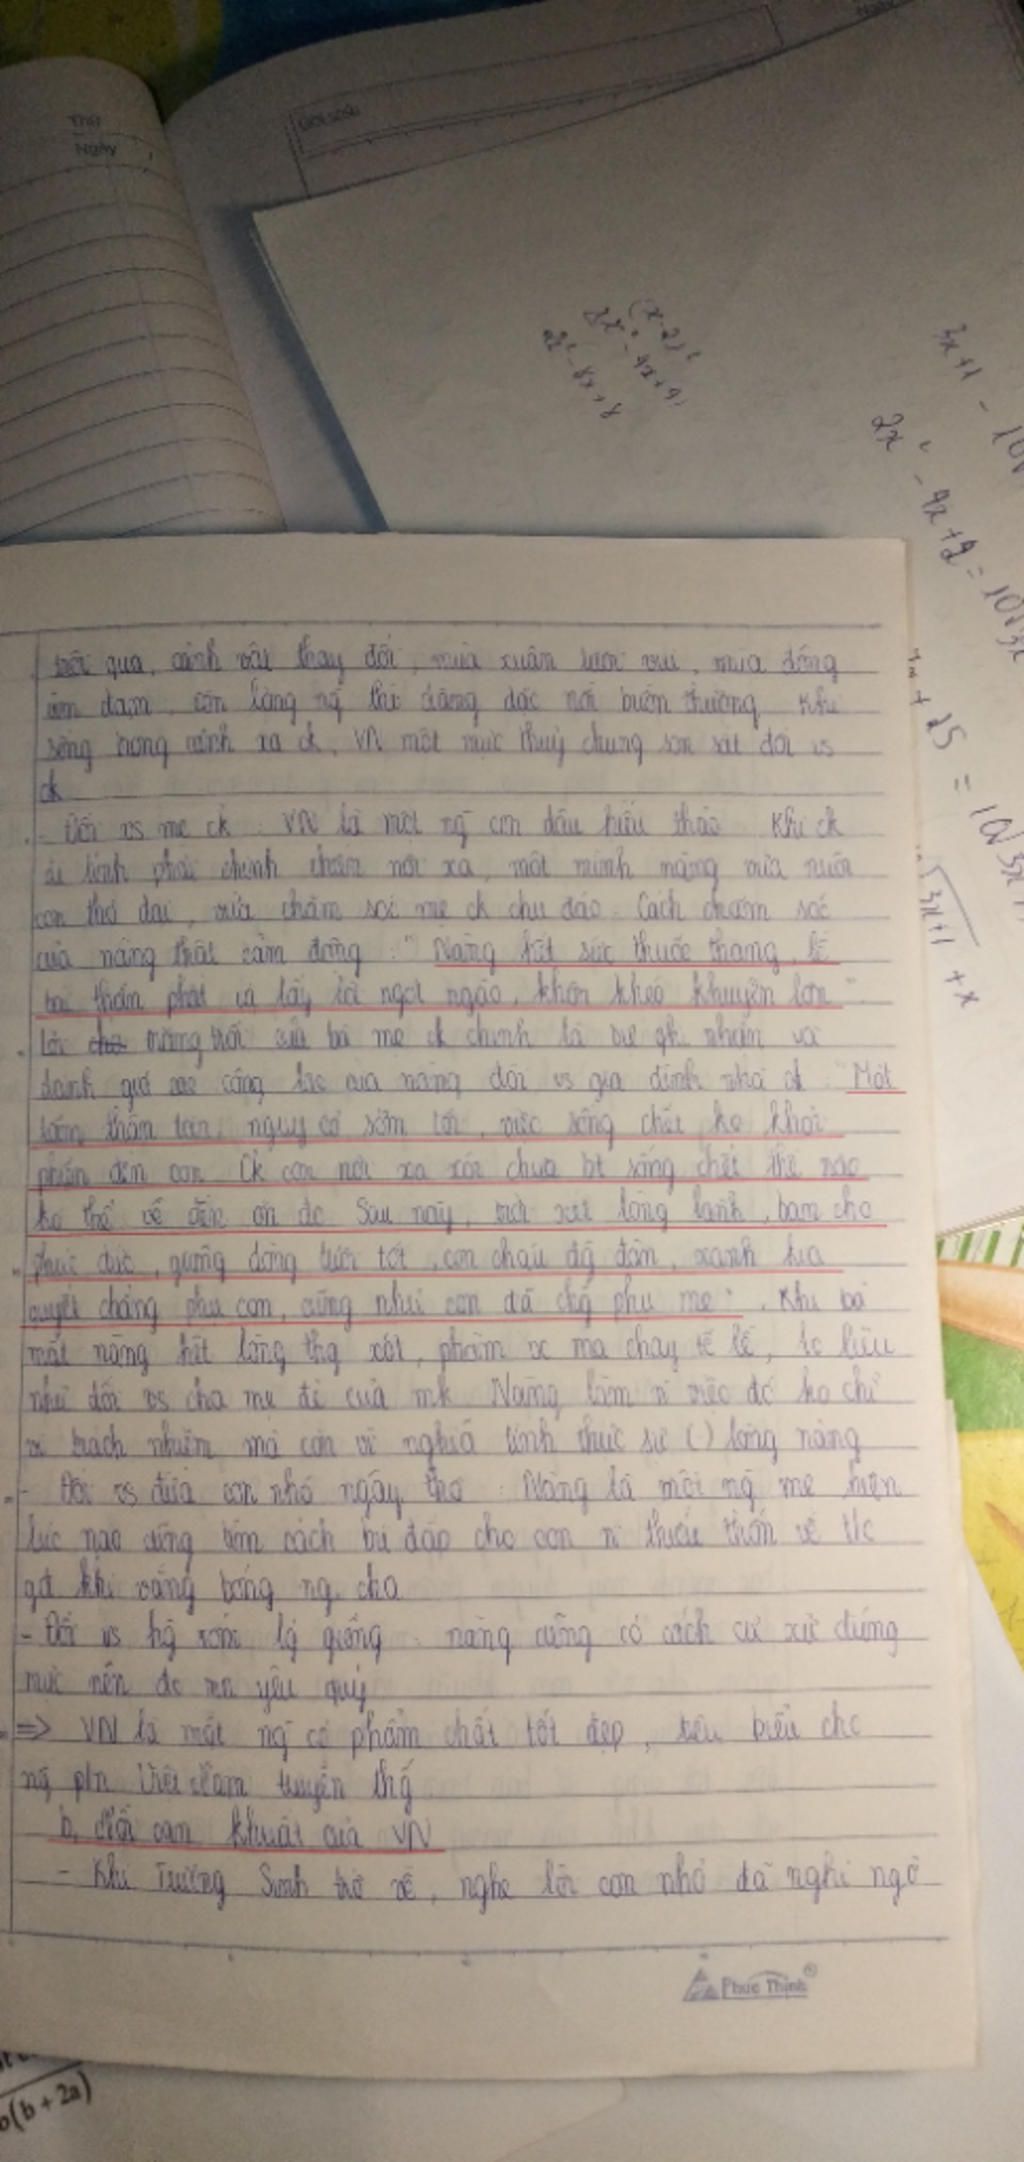 Thứ
Ngày
(x-2)²
2x² - 8x + 8
3x+1 - 10
2x² - 4x + 2 = 10√3x
+ 25 = 10√3x
√3x+1 + x
trôi qua, cảnh vật thay đổi, mùa xuân tươi vui, mùa đông
ảm đạm, còn lòng ng̃ thì dằng dặc nỗi buồn thương. Khi
sống trong cảnh xa ck, VN một mực thuỷ chung son sắt đối vs
ck
- Đối vs mẹ ck: VN là một ng̃ con dâu hiếu thảo. Khi ck
đi lính phải chinh chiến nơi xa, một mình nàng vừa nuôi
con thơ dại, vừa chăm sóc mẹ ck chu đáo. Cách chăm sóc
của nàng thật cảm động: "Nàng hết sức thuốc thang, lễ
bái thần phật và lấy lời ngọt ngào, khôn khéo khuyên lơn"
Lời trăng trối của bà mẹ ck chính là sự ghi nhận và
đánh giá công lao của nàng đối vs gia đình nhà ck: "Một
tấm thân tàn, nguy cơ sớm tối, việc sống chết ko khỏi
phiền đến con. Ck con nơi xa xôi chưa bt sống chết thế nào
ko thể về đền ơn đc. Sau này, trời xét lòng lành, ban cho
phúc đức, giống dòng tươi tốt, con cháu đg̃ đàn, xanh kia
quyết chẳng phụ con, cũng như con đã chg̃ phụ mẹ". Khi bà
mất nàng hết lòng thg xót, phàm vc ma chay tế lễ, lo liệu
như đối vs cha mẹ đẻ của mk. Nàng làm n~ việc đó ko chỉ
vì trách nhiệm mà còn vì nghĩa tình thực sự () lòng nàng
- Đối vs đứa con nhỏ ngây thơ: Nàng là một ng̃ mẹ hiền
lúc nào cũng tìm cách bù đắp cho con n~ thiếu thốn về t/c
gđ khi vắng bóng ng̃ cha
- Đối vs hg̃ xóm lg̃ giềng: nàng cũng có cách cư xử đúng
mực nên đc mn yêu quý
=> VN là một ng̃ có phẩm chất tốt đẹp, tiêu biểu cho
ng̃ pln Việt Nam truyền thg̃
b, Nỗi oan khuất của VN
- Khi Trương Sinh trở về, nghe lời con nhỏ đã nghi ngờ
Phúc Thịnh
b(b + 2a)